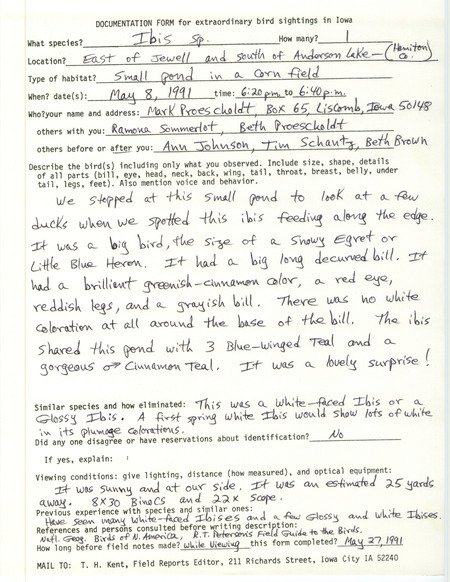 DOCUMENTATION FORM for extraordinary bird sightings in Iowa
What species? Ibis sp. How many? 1
Location? East of Jewell and south of Anderson Lake - (Hamilton Co.)
Type of habitat? Small pond in a corn field
When? date(s): May 8, 1991 time: 6:20 pm to 6:40 p.m.
Who?your name and address: Mark Proescholdt, Box 65, Liscomb, Iowa 50148
others with you: Ramona Sommerlot, Beth Proescholdt
others before or after you: Ann Johnson, Tim Schantz, Beth Brown
Describe the bird(s) including only what you observed. Include size, shape, details
of all parts (bill, eye, head, neck, back, wing, tail, throat, breast, belly, under
tail, legs, feet). Also mention voice and behavior.
We stopped at this small pond to look at a few
ducks when we spotted this ibis feeding along the edge.
It was a big bird, the size of a Snowy Egret or
Little Blue Heron. It had a big long decurved bill. It
had a brilliant greenish-cinnamon color, a red eye,
reddish legs, and a grayish bill. There was no white
coloration at all around the base of the bill. The ibis
shared this pond with 3 Blue-winged Teal and a
gorgeous ♂ Cinnamon Teal. It was a lovely surprise!
Similar species and how eliminated: This was a White-faced Ibis or a
Glossy Ibis. A first spring white Ibis would show lots of white
in its plumage colorations.
Did any one disagree or have reservations about identification? No
If yes, explain:
Viewing conditions: give lighting, distance (how measured), and optical equipment:
It was sunny and at our side. It was an estimated 25 yards
away. 8x30 Binocs and 22x scope.
Previous experience with species and similar ones:
Have seen many white-faced Ibises and a few Glossy and White Ibises.
References and persons consulted before writing description:
Natl. Geog. Birds of N. America, R.T. Peterson's Field Guide to the Birds.
How long before field notes made? while viewing this form completed? May 27, 1991
MAIL TO: T. H. Kent, Field Reports Editor, 211 Richards Street, Iowa City IA 52240